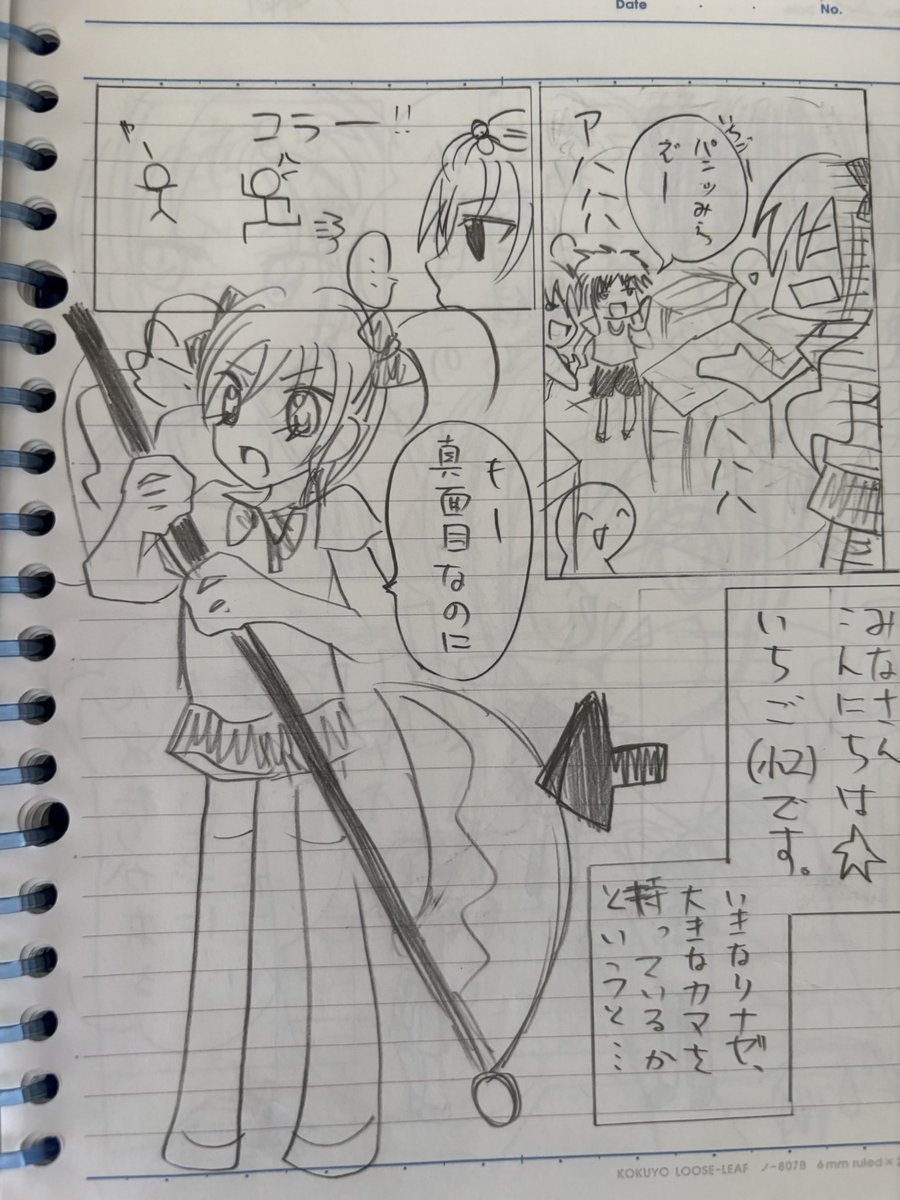 Date
No.
いちごー
パンツみえ
ぞー
アハハハ
ハハハ
コラー!!
……
もー
真面目なのに
みなさん
こんにちは☆
いちご(小2)です。
いきなりナゼ、
大きなカマを
持っているか
というと…
KOKUYO LOOSE-LEAF ノ-807B 6mm ruled×